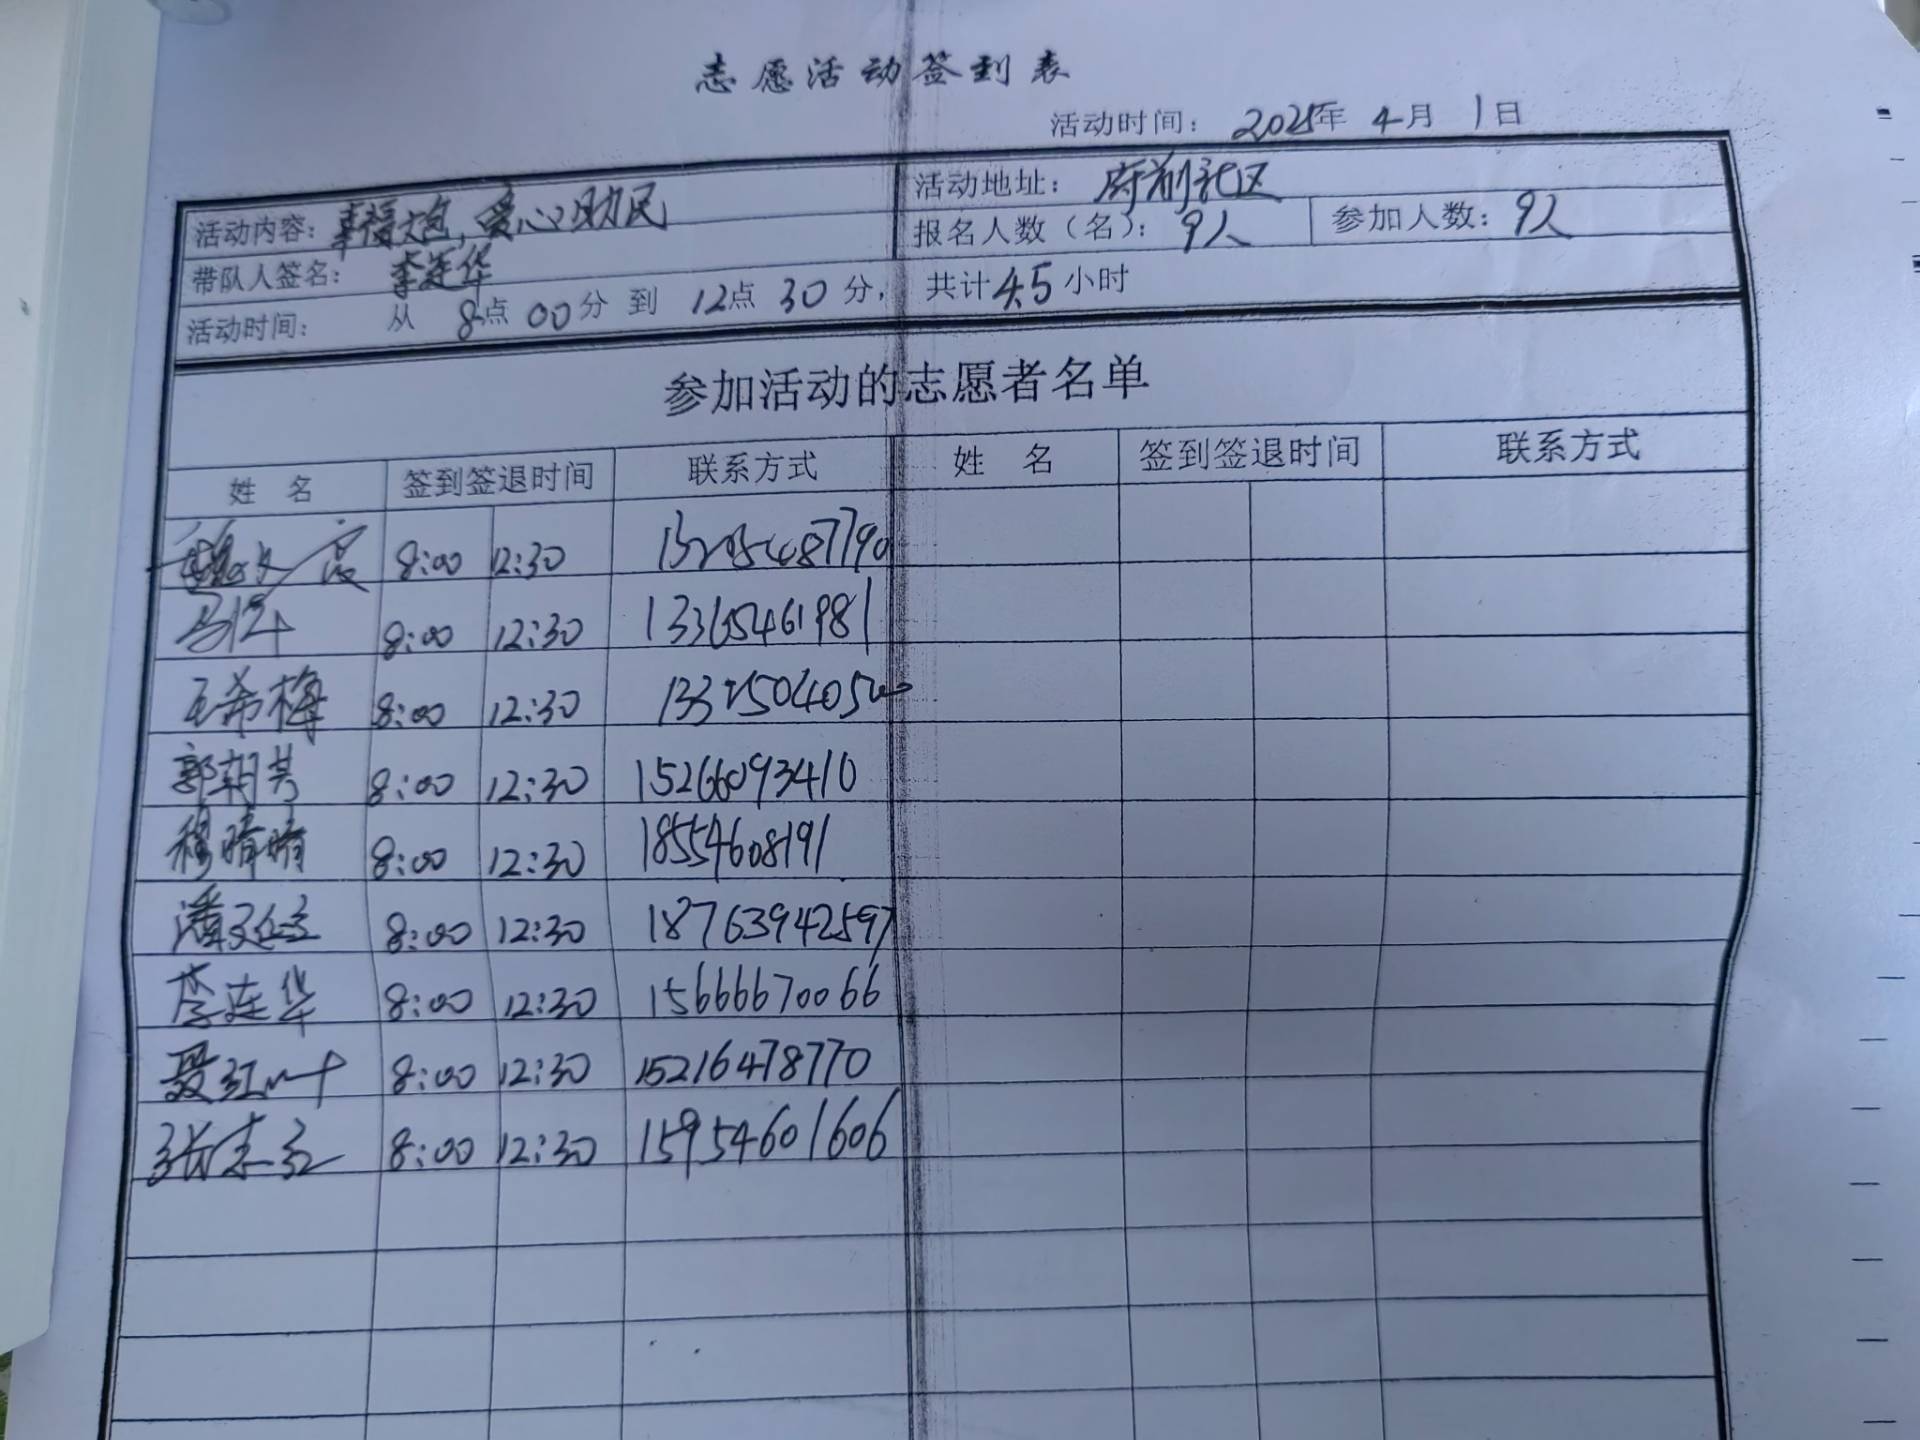 志愿活动签到表
活动时间： 2025年 4月 1日
活动内容：幸福大包，爱心助民 活动地址： 府前社区
报名人数（名）： 9人 参加人数： 9人
带队人签名： 李连华
活动时间： 从 8点 00分 到 12点 30分， 共计 4.5 小时
参加活动的志愿者名单
姓 名 签到签退时间 联系方式 姓 名 签到签退时间 联系方式
8:00 12:30
8:00 12:30 13365461981
王希梅 8:00 12:30
郭朝芳 8:00 12:30 15266093410
穆晴晴 8:00 12:30 18554608191
潘 8:00 12:30 18763942597
李连华 8:00 12:30 15666670066
聂红叶 8:00 12:30 15216478770
张志红 8:00 12:30 15954601606